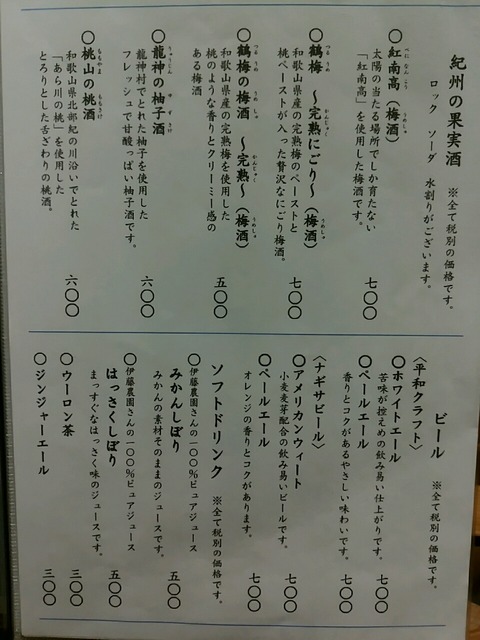 紀州の果実酒　※全て税別の価格です。
ロック　ソーダ　水割りがございます。
〇紅南高（梅酒）　七〇〇
べになんこう　うめしゅ
太陽の当たる場所でしか育たない
「紅南高」を使用した梅酒です。
〇鶴梅　～完熟にごり～（梅酒）　七〇〇
つるうめ　かんじゅく　うめしゅ
和歌山県産の完熟梅のペーストと
桃ペーストが入った贅沢なにごり梅酒。
〇鶴梅の梅酒　～完熟～（梅酒）　五〇〇
つるうめ　うめしゅ　かんじゅく　うめしゅ
和歌山県産の完熟梅を使用した
桃のような香りとクリーミー感の
ある梅酒
〇龍神の柚子酒　六〇〇
りゅうじん　ゆずさけ
龍神村でとれた柚子を使用した
フレッシュで甘酸っぱい柚子酒です。
〇桃山の桃酒　六〇〇
ももやま　ももさけ
和歌山県北部紀の川沿いでとれた
「あら川の桃」を使用した
とろりとした舌ざわりの桃酒。
ビール　※全て税別の価格です。
〈平和クラフト〉
〇ホワイトエール　七〇〇
苦味が控えめの飲み易い仕上がりです。
〇ペールエール　七〇〇
香りとコクがあるやさしい味わいです。
〈ナギサビール〉
〇アメリカンウィート　七〇〇
小麦麦芽配合の飲み易いビールです。
〇ペールエール　七〇〇
オレンジの香りとコクがあります。
ソフトドリンク　※全て税別の価格です。
〇伊藤農園さんの一〇〇％ピュアジュース
みかんしぼり　五〇〇
みかんの素材そのままのジュースです。
〇伊藤農園さんの一〇〇％ピュアジュース
はっさくしぼり　五〇〇
まっすぐなはっさく味のジュースです。
〇ウーロン茶　三〇〇
〇ジンジャーエール　三〇〇